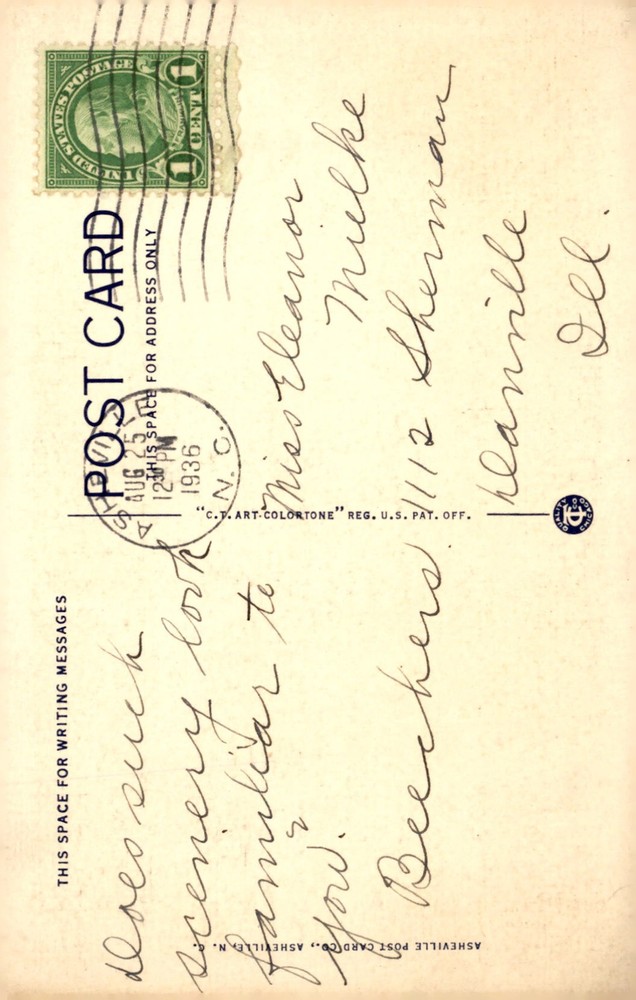 THIS SPACE FOR WRITING MESSAGES
Does such
scenery look
familiar to
you?
Beechers.
ASHEVILLE POST CARD CO., ASHEVILLE, N. C.
"C.T. ART-COLORTONE" REG. U.S. PAT. OFF.
POST CARD
THIS SPACE FOR ADDRESS ONLY
UNITED STATES POSTAGE
1 CENT 1
ASHEVILLE
AUG 25
12 PM
1936
N. C.
Miss Eleanor
Mielke
1112 Sherman
Danville
Ill.
QUALITY
CT CO
CHICAGO